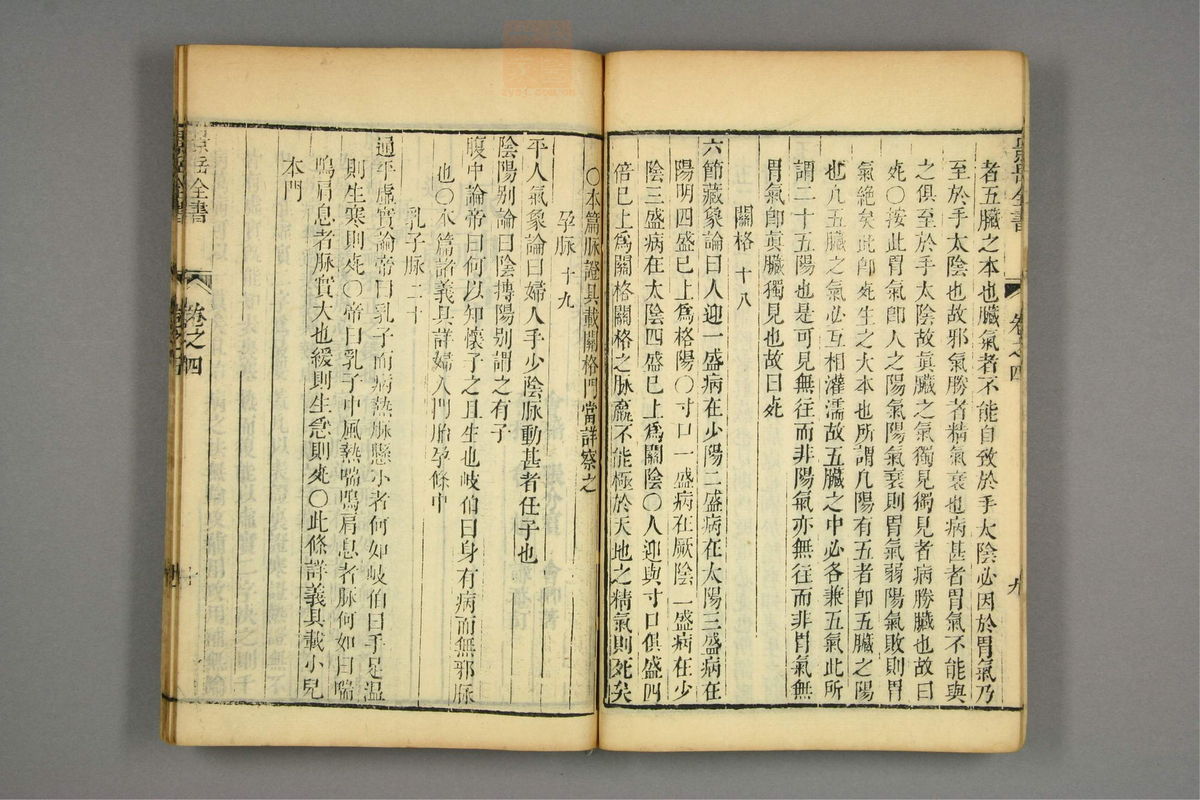 景岳全書
卷之四
九
者五臟之本也臟氣者不能自致於手太陰必因於胃氣乃
至於手太陰也故邪氣勝者精氣衰也病甚者胃氣不能與
之俱至於手太陰故眞臟之氣獨見獨見者病勝臟也故曰
死○按此胃氣卽人之陽氣陽氣衰則胃氣弱陽氣敗則胃
氣絶矣此卽死生之大本也所謂凡陽有五者卽五臟之陽
也凡五臟之氣必互相灌濡故五臟之中必各兼五氣此所
謂二十五陽也是可見無往而非陽氣亦無往而非胃氣無
胃氣卽眞臟獨見也故曰死
關格 十八
六節藏象論曰人迎一盛病在少陽二盛病在太陽三盛病在
陽明四盛已上爲格陽○寸口一盛病在厥陰二盛病在少
陰三盛病在太陰四盛已上爲關陰○人迎與寸口俱盛四
倍已上爲關格關格之脉羸不能極於天地之精氣則死矣
○本篇脉證具載關格門當詳察之
孕脉 十九
平人氣象論曰婦人手少陰脉動甚者任子也
陰陽别論曰陰搏陽别謂之有子
腹中論帝曰何以知懷子之且生也岐伯曰身有病而無邪脉
也○本篇諸義具詳婦人門胎孕條中
乳子脉 二十
通平虛實論帝曰乳子而病熱脉懸小者何如岐伯曰手足温
則生寒則死○帝曰乳子中風熱喘鳴肩息者脉何如曰喘
鳴肩息者脉實大也緩則生急則死○此條詳義具載小兒
本門
景岳全書
卷之四